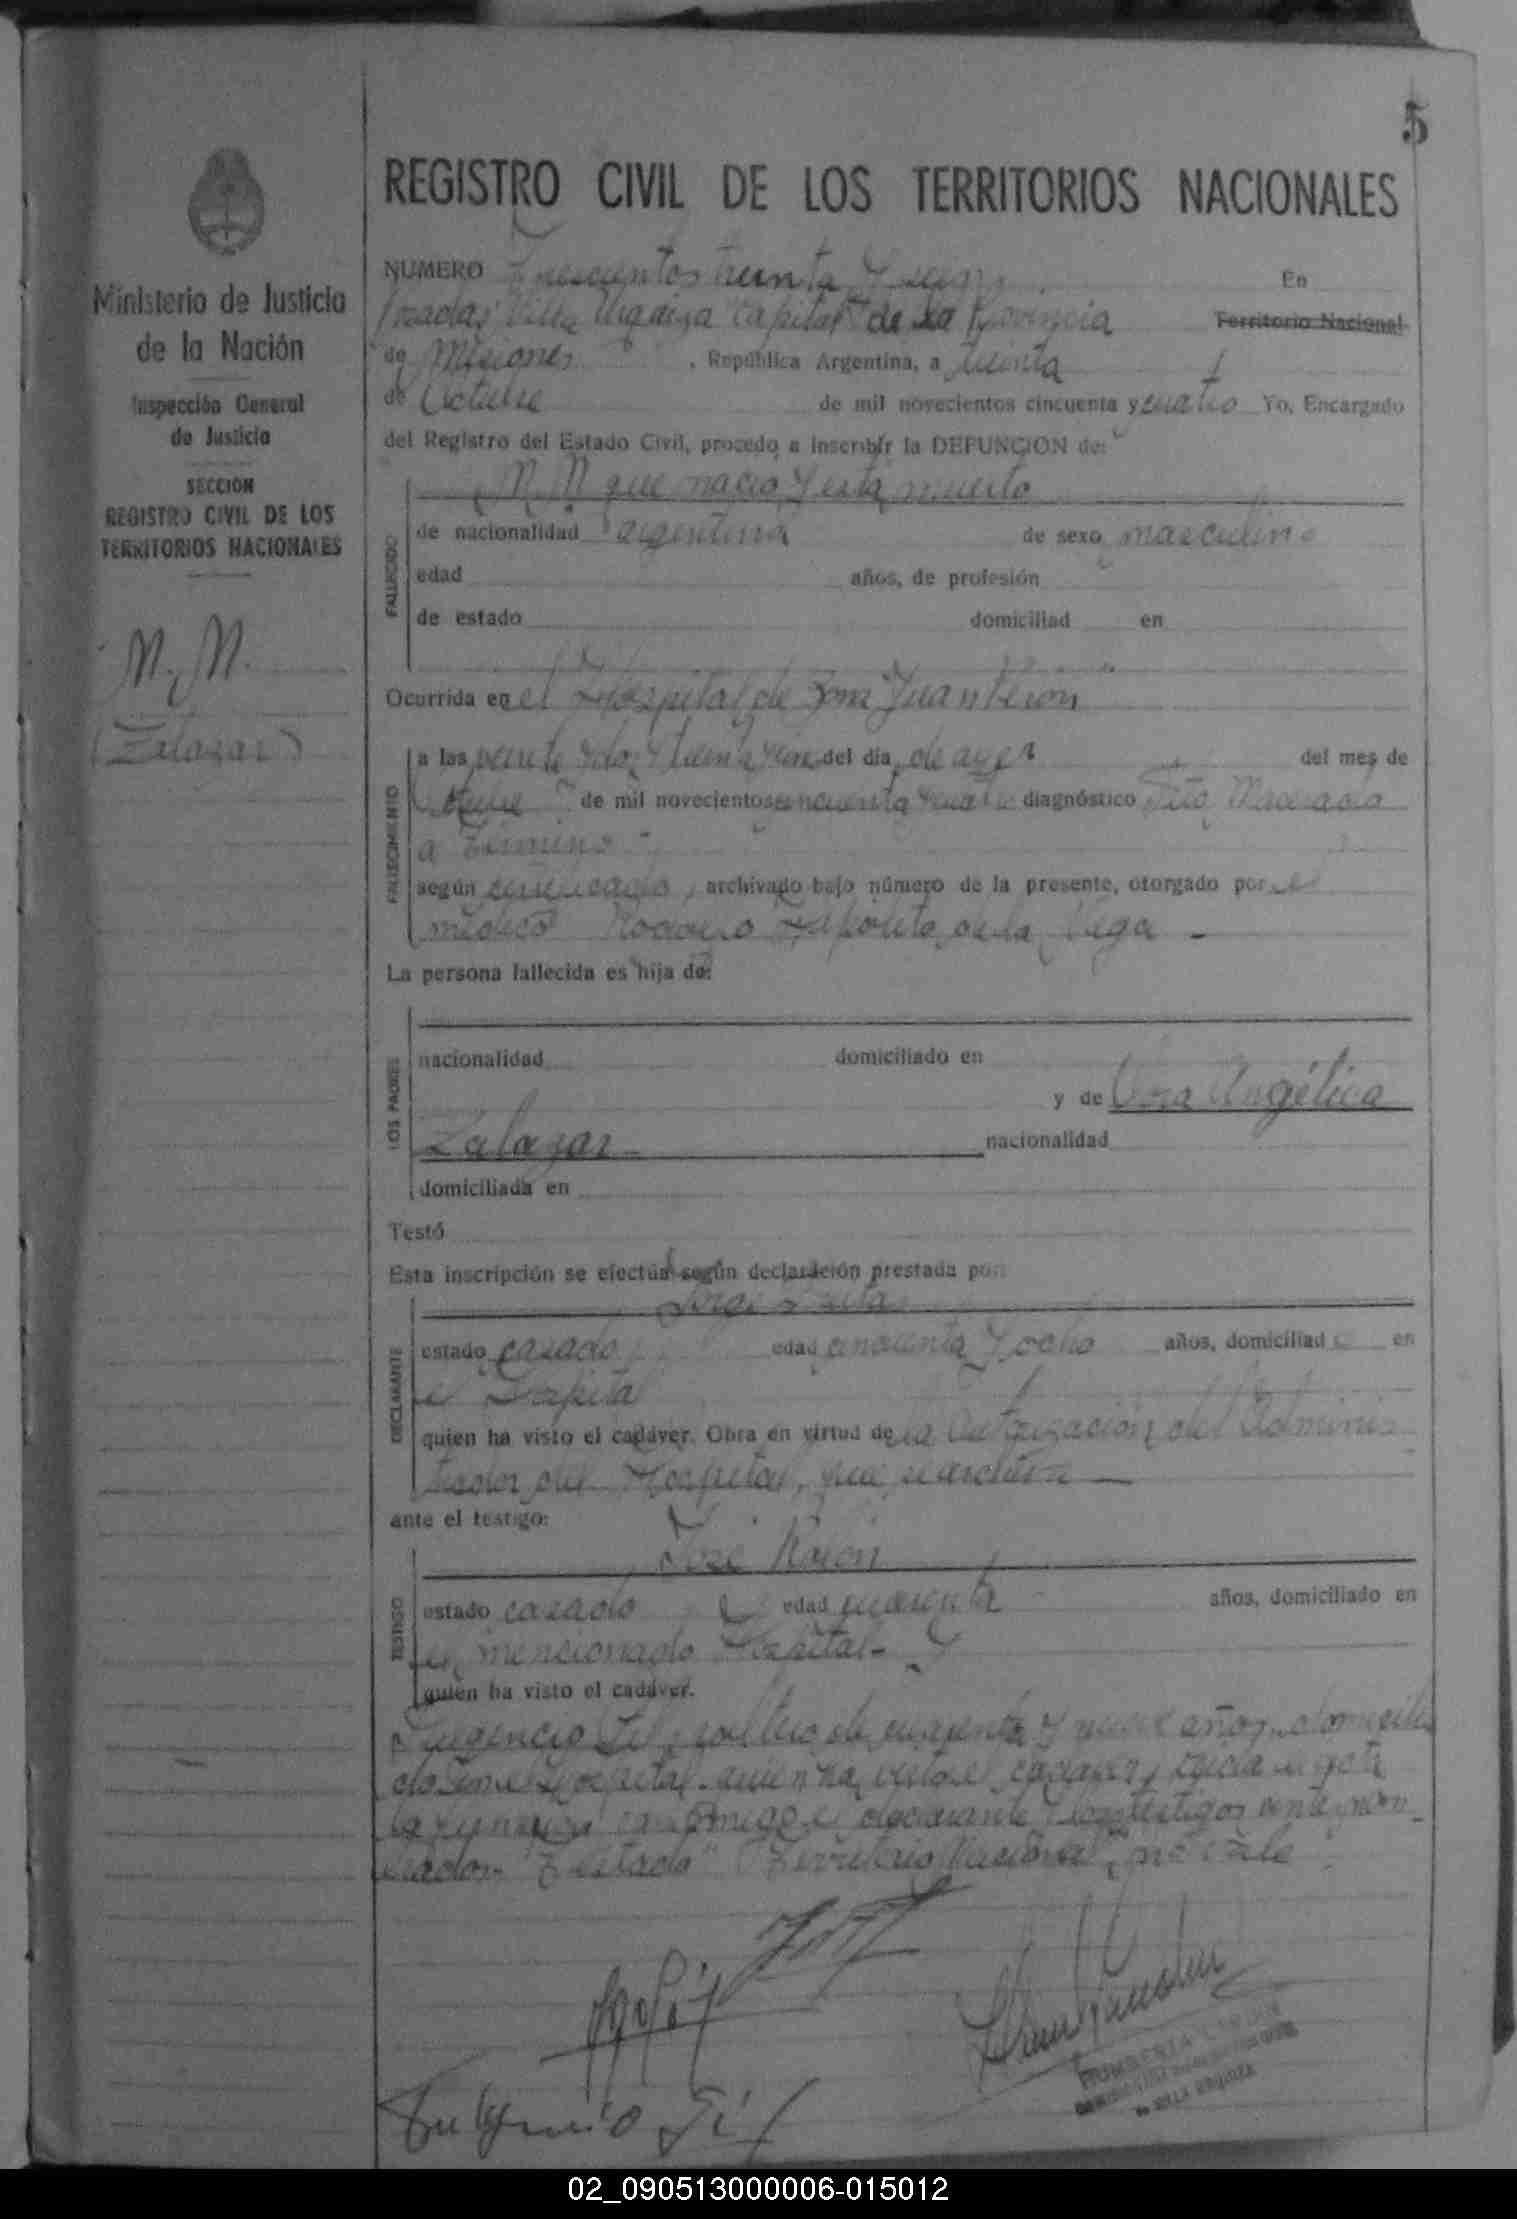 5
REGISTRO CIVIL DE LOS TERRITORIOS NACIONALES
Ministerio de Justicia
de la Nación
Inspección General
de Justicia
SECCION
REGISTRO CIVIL DE LOS
TERRITORIOS NACIONALES
N. N.
(Zalazar)
NUMERO Trescientos treinta y seis En
Posadas Villa Urquiza Capital de la Provincia Territorio Nacional
de Misiones, República Argentina, a treinta
de Octubre de mil novecientos cincuenta y cuatro Yo, Encargado
del Registro del Estado Civil, procedo a inscribir la DEFUNCION de:
N. N que nació y está muerto
FALLECIDO
de nacionalidad argentina de sexo masculino
edad años, de profesión
de estado domiciliad en
Ocurrida en el Hospital de Juan Perón
FALLECIMIENTO
a las veinte y dos y treinta del día de ayer del mes de
Octubre de mil novecientos cincuenta y cuatro diagnóstico Feto Macerado
a término
según certificado, archivado bajo número de la presente, otorgado por el
médico Hipólito de la Vega -
La persona fallecida es hija de:
LOS PADRES
nacionalidad domiciliado en
y de Angélica
Zalazar nacionalidad
domiciliada en
Testó
Esta inscripción se efectúa según declaración prestada por
Jorge
DECLARANTE
estado casado edad cincuenta y ocho años, domiciliad o en
el Hospital
quien ha visto el cadáver. Obra en virtud de la autorización del Adminis
trador del Hospital, que se archiva
ante el testigo:
José
TESTIGO
estado casado edad cuarenta años, domiciliado en
el mencionado Hospital- y
quien ha visto el cadáver.
Fulgencio Gil, soltero de cuarenta y nueve años, domicilia
do en el Hospital quien ha visto el cadáver, Leída el acta
la firman conmigo el declarante y los testigos antes nom
brados- Testado "Territorio Nacional", no vale
Fulgencio Gil
VILLA URQUIZA
02_090513000006-015012